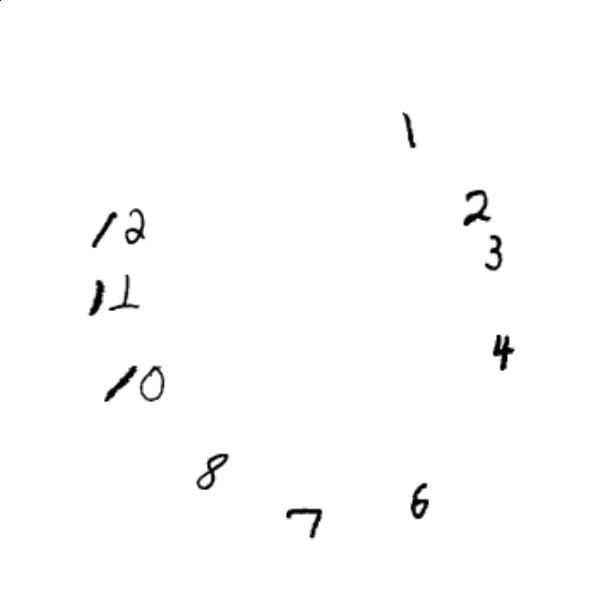 1
2
3
4
6
7
8
10
11
12